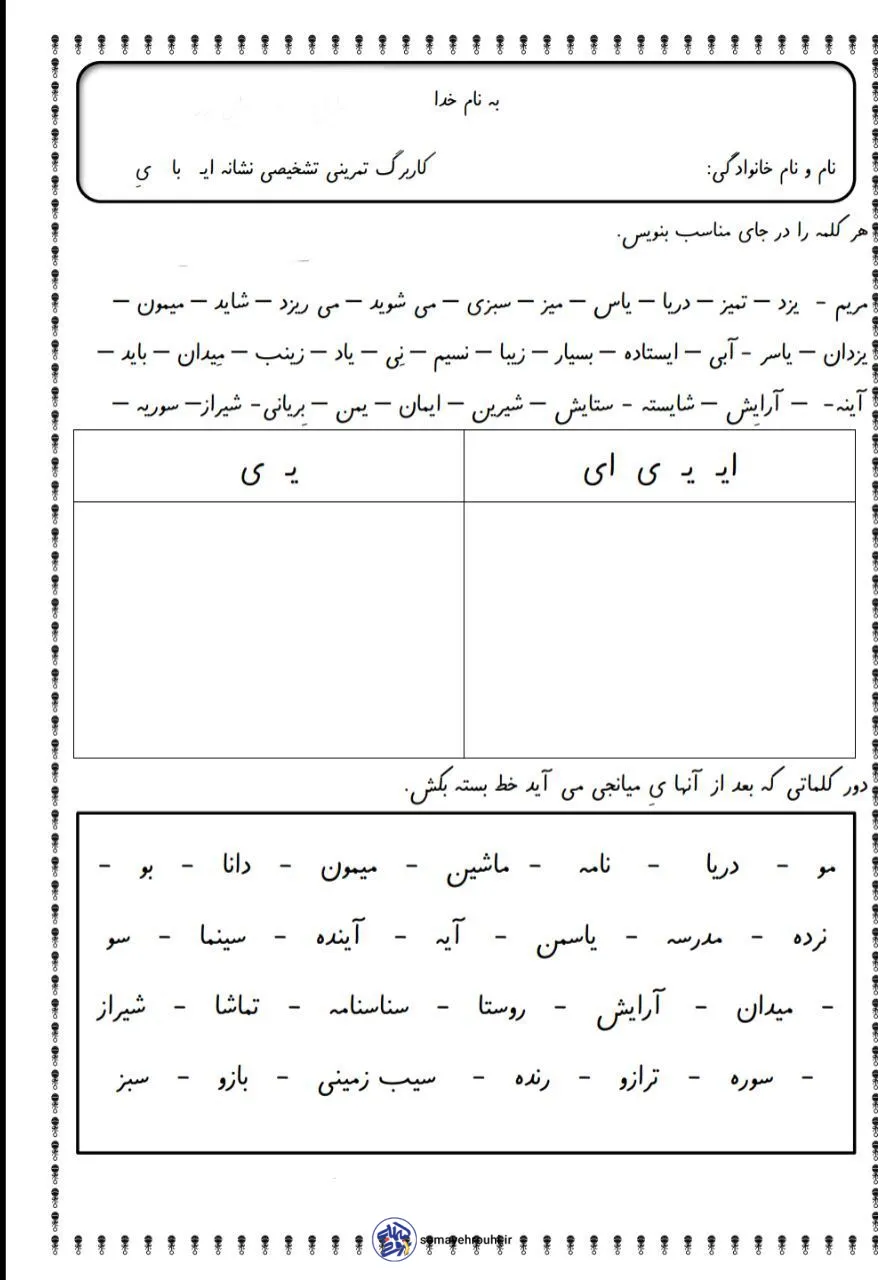 به نام خدا
نام و نام خانوادگی:
کاربرگ تمرینی تشخیصی نشانه ایـ با یِ
هر کلمه را در جای مناسب بنویس.
مریم - یزد – تمیز – دریا – یاس – میز – سبزی – می شوید – می ریزد – شاید – میمون –
یزدان – یاسر - آبی – ایستاده – بسیار – زیبا – نسیم – نِی – یاد – زینب – مِیدان – باید –
آینه- – آرایِش – شایسته - ستایش – شیرین – ایمان – یمن – بِریانی- شیراز– سوریه –
ایـ یـ ی ای
یـ ی
دور کلماتی که بعد از آنها یِ میانجی می آید خط بسته بکش.
مو - دریا - نامه - ماشین - میمون - دانا - بو -
نرده - مدرسه - یاسمن - آیه - آینده - سینما - سو
- میدان - آرایش - روستا - سناسنامه - تماشا - شیراز
- سوره - ترازو - رنده - سیب زمینی - بازو - سبز
somayehrouhi.ir